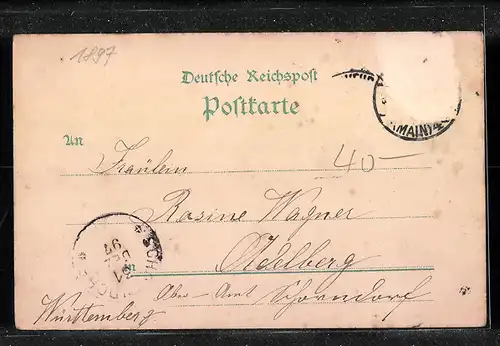 1897
Deutsche Reichspost
Postkarte
(MAIN) 4
An
Fräulein
40 –
Rosine Wagner
in Adelberg
Ober-Amt Schorndorf
Württemberg.
97